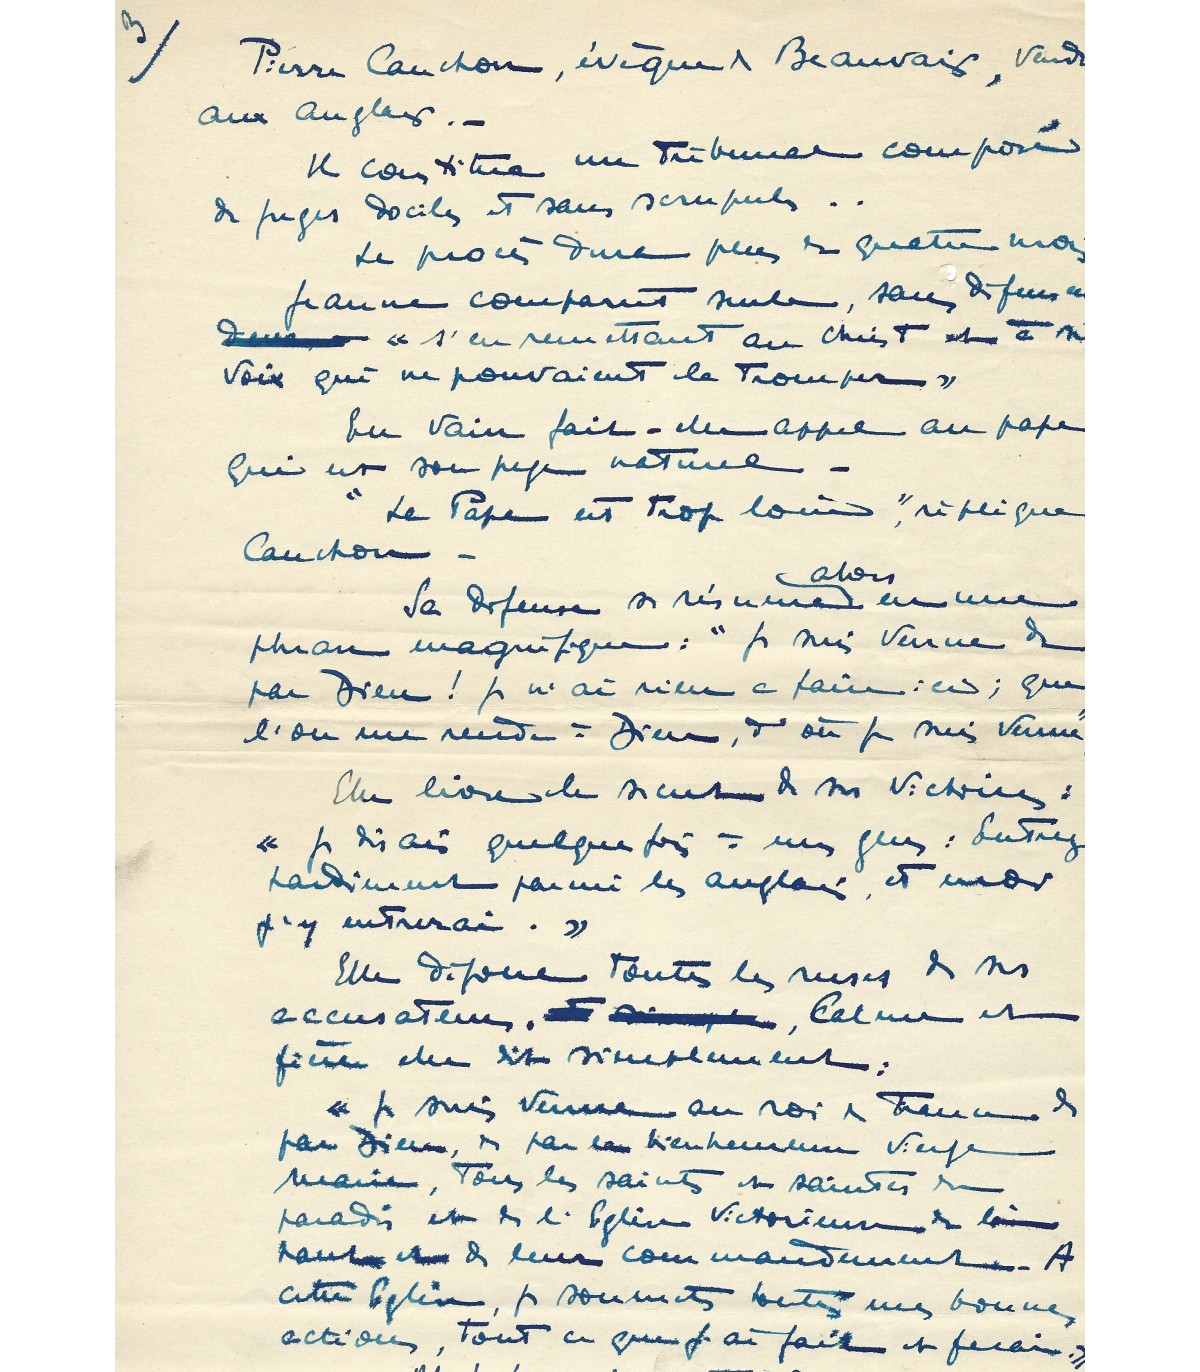 3/
Pierre Cauchon, évêque de Beauvais, vendu
aux anglais. –
Il constitua un tribunal composé
de juges dociles et sans scrupules . .
Le procès dura plus de quatre mois
Jeanne comparut seule, sans défenseur
« s'en remettant au Christ et à ses
voix qui ne pouvaient la tromper »
En vain fait-elle appel au pape
qui est son juge naturel –
" Le Pape est trop loin ", réplique
Cauchon –
alors
Sa défense se résume en une
phrase magnifique : " je suis venue de
par Dieu ! je n'ai rien a faire ici ; que
l'on me rende à Dieu, d'où je suis venue "
Elle livre le secret de ses victoires :
« je disais quelquefois à mes gens : Entrez
hardiment parmi les anglais, et moi
j'y entrerai . »
Elle déjoue toutes les ruses de ses
accusateurs. , Calme et
fière elle dit simplement :
« je suis venue au roi de France de
par Dieu, de par la bienheureuse Vierge
Marie, tous les saints et saintes du
paradis et de l'Eglise victorieuse de là
haut et de leur commandement – A
cette Eglise, je soumets toutes mes bonnes
actions, tout ce que j'ai fait et ferai. »